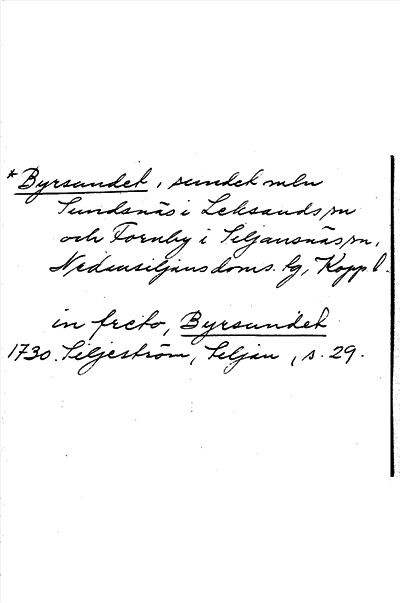 *Byrsundet, sundet mln
Sundsnäs i Leksands sn
och Fornby i Siljansnäs sn,
Nedansiljans doms. tg, Kopp l.
in freto, Byrsundet
1730. Siljeström, Siljan, s. 29.